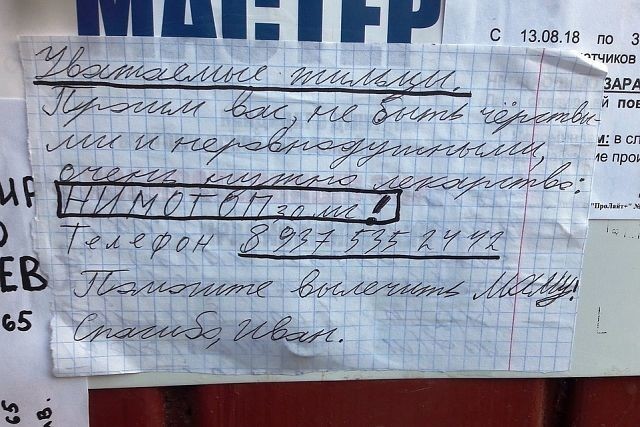 МАСТЕР
С 13.08.18 по 3
отчиков
ЗАРА
й пов
м: в сл
ие прои
"ПроЛайт+" №
Уважаемые жильцы.
Просим вас, не быть чёрствы-
ми и неравнодушными,
очень нужно лекарство:
НИМОТОП 30 мг!
Телефон 8 937 535 24 42
Помогите вылечить маму!
Спасибо, Иван.
ИГ
О
ЕВ
65
65
АВ.